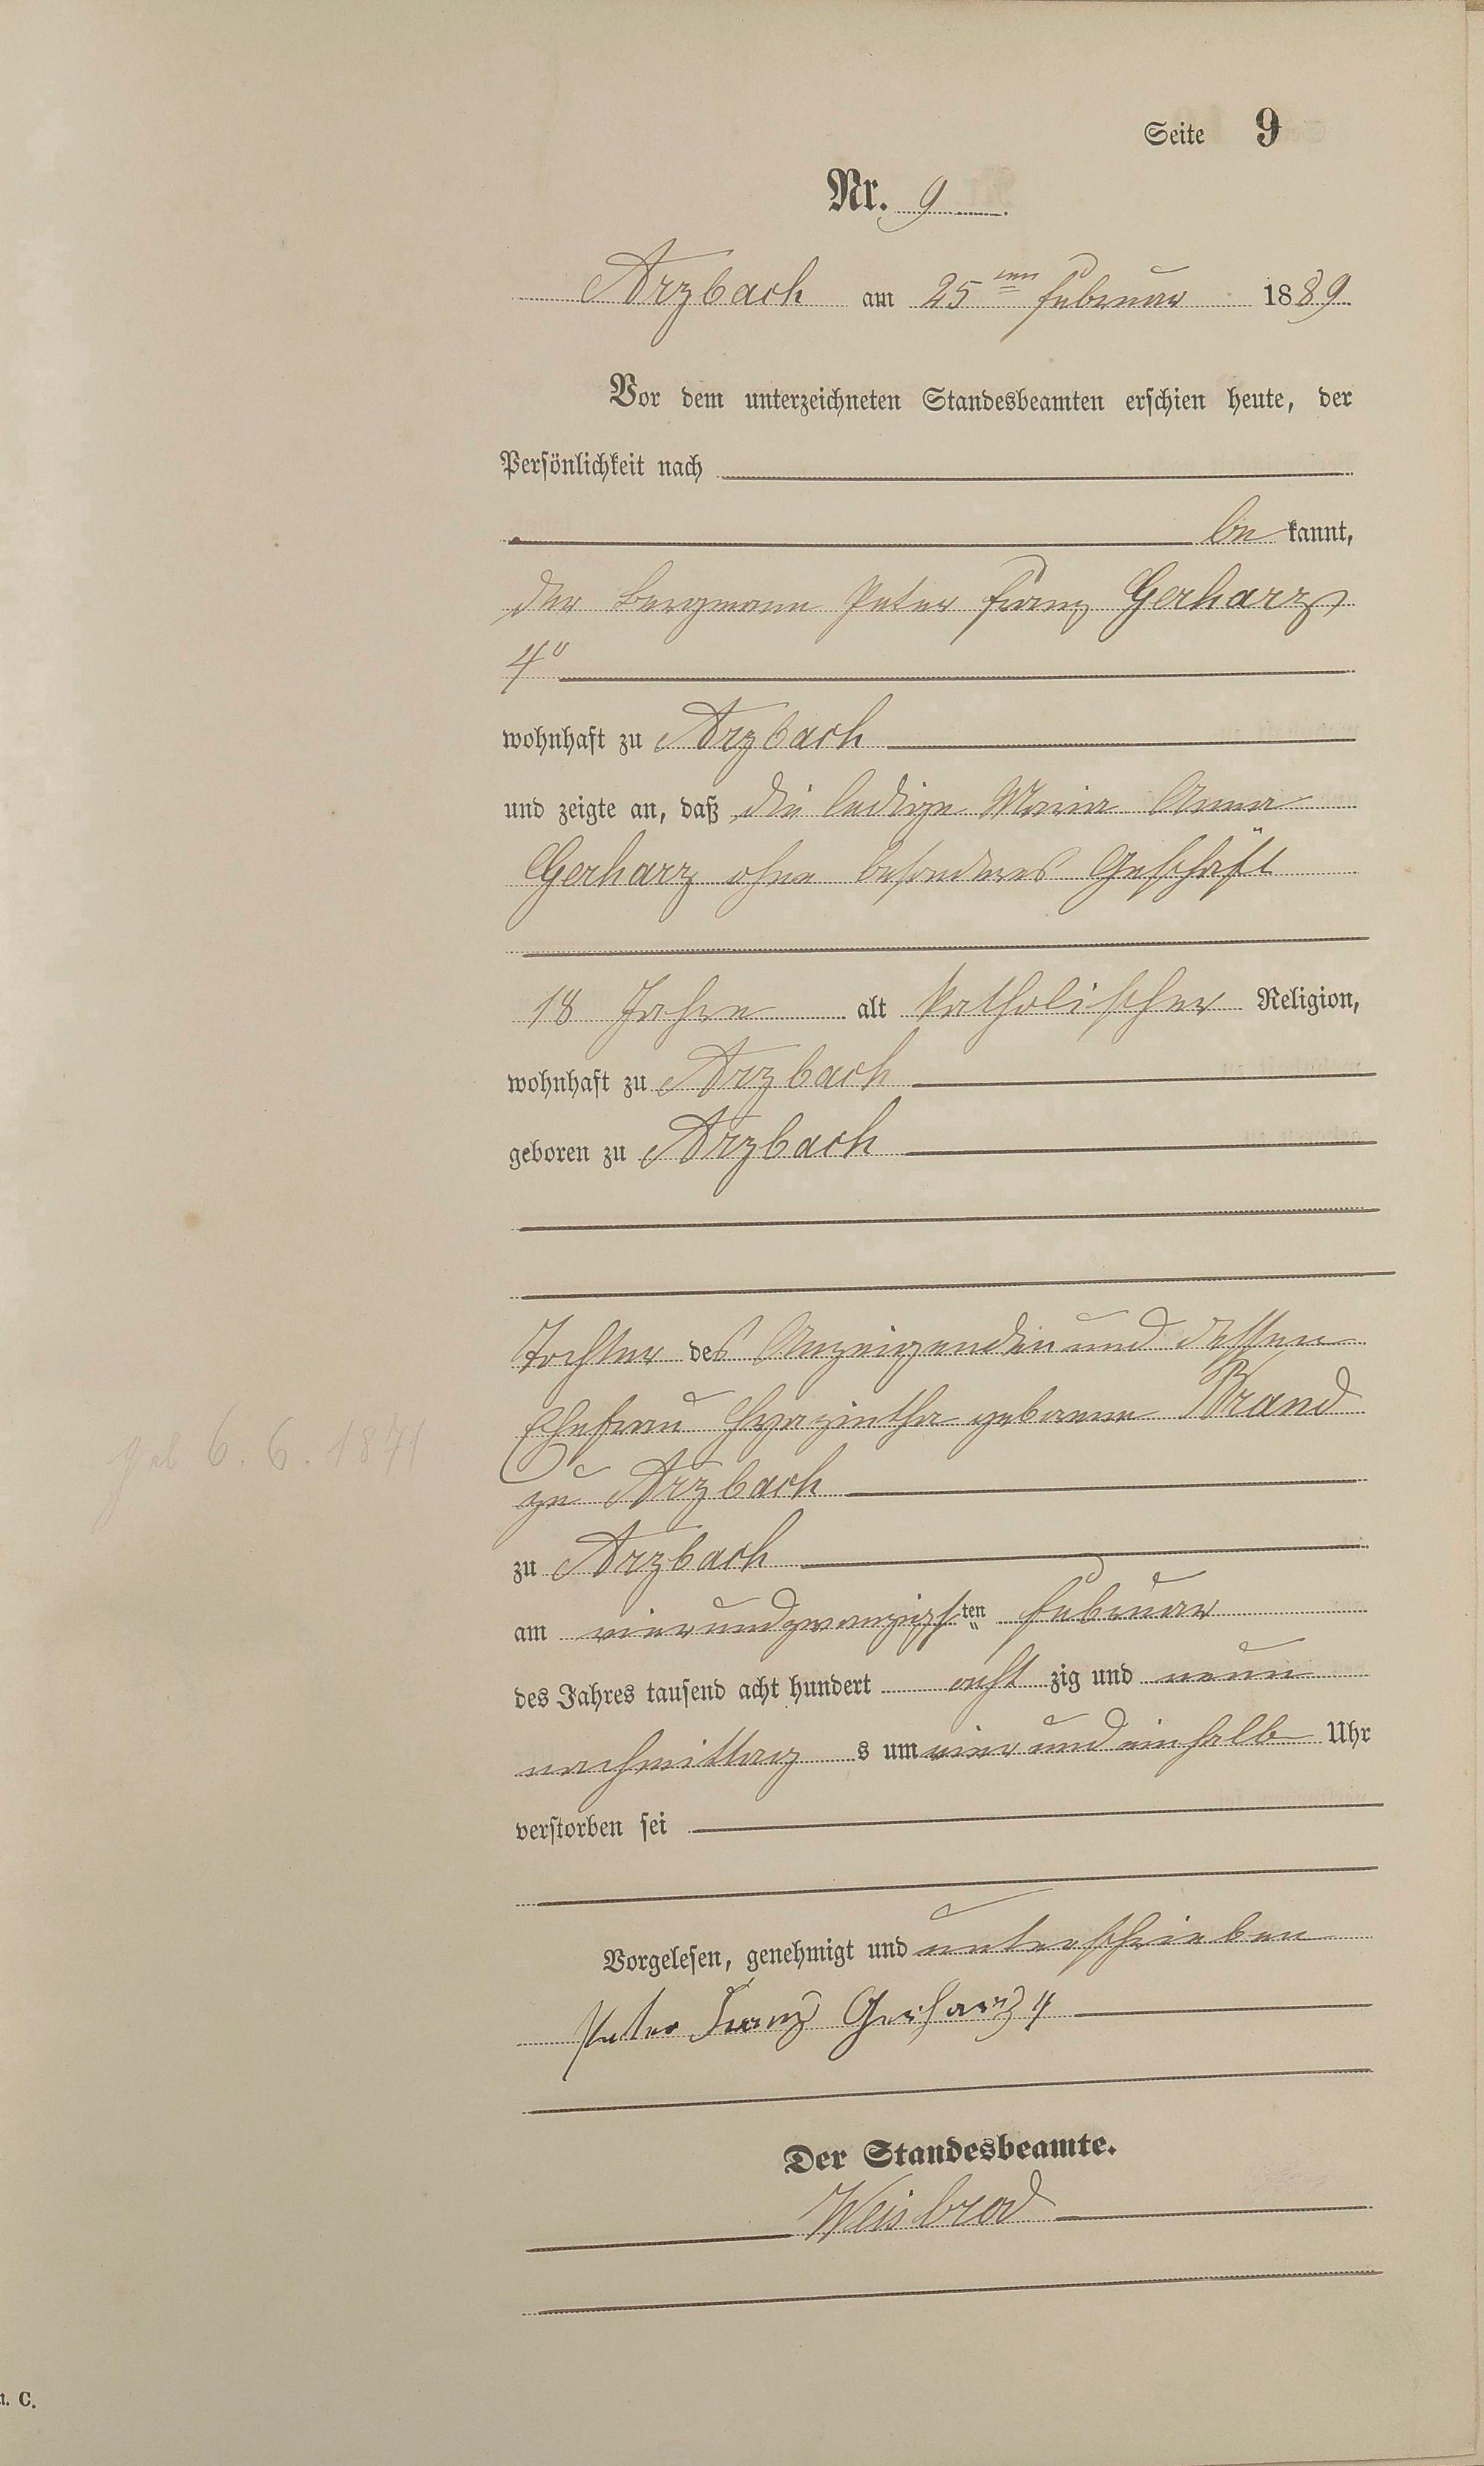 Seite 9
Nr. 9
Arzbach am 25ten Februar 1889
Vor dem unterzeichneten Standesbeamten erschien heute, der
Persönlichkeit nach
be kannt,
der Bergmann Peter Franz Gerharz
4"
wohnhaft zu Arzbach
und zeigte an, daß die ledige Maria Anna
Gerharz ohne besonderes Geschäft
18 Jahre alt katholischer Religion,
wohnhaft zu Arzbach
geboren zu Arzbach
Tochter des Anzeigenden und dessen
Ehefrau Hyazintha geborene Brand
zu Arzbach
geb 6. 6. 1871
zu Arzbach
am vierundzwanzigsten Februar
des Jahres tausend acht hundert acht zig und neun
nachmittag s um vier und ein halb Uhr
verstorben sei
Vorgelesen, genehmigt und unterschrieben
Peter Franz Gerharz 4
Der Standesbeamte.
Weisbrod
C.